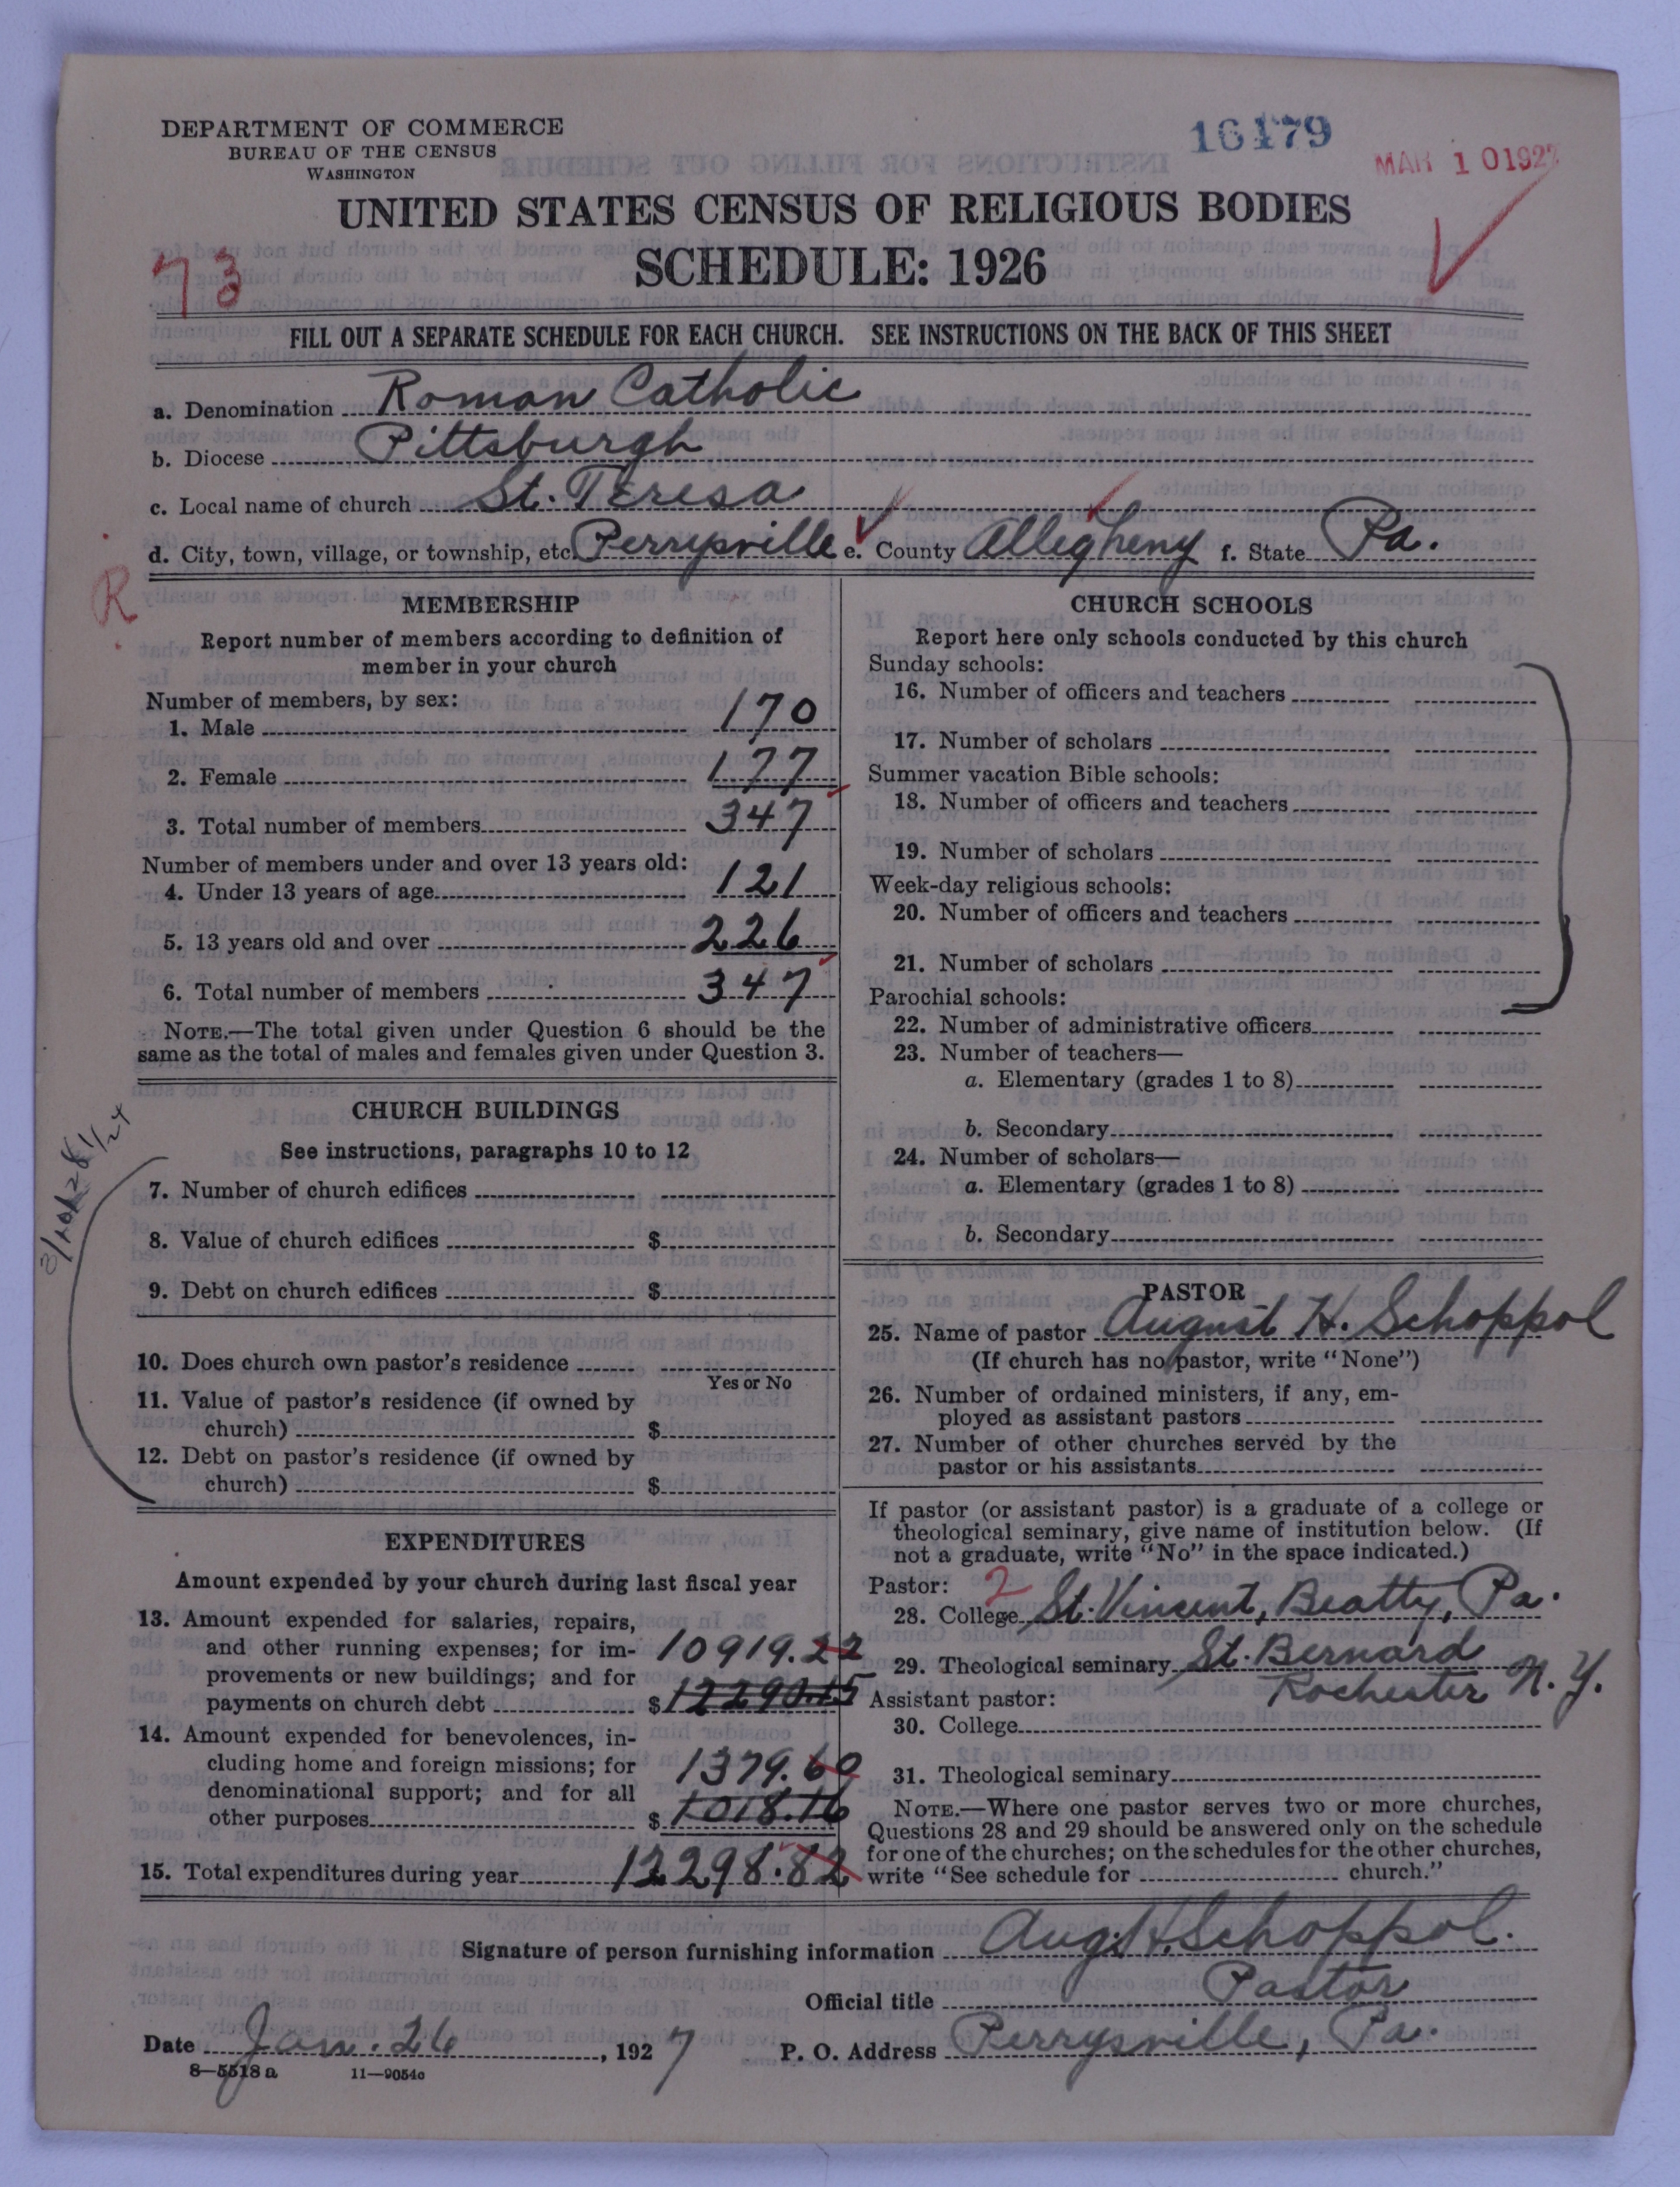 DEPARTMENT OF COMMERCE
BUREAU OF THE CENSUS
WASHINGTON
16179
MAR 10 1927
UNITED STATES CENSUS OF RELIGIOUS BODIES
SCHEDULE: 1926
73
FILL OUT A SEPARATE SCHEDULE FOR EACH CHURCH. SEE INSTRUCTIONS ON THE BACK OF THIS SHEET
a. Denomination Roman Catholic
b. Diocese Pittsburgh
c. Local name of church St. Teresa
d. City, town, village, or township, etc. Perrysville e. County Allegheny f. State Pa.
R
MEMBERSHIP
Report number of members according to definition of
member in your church
Number of members, by sex:
1. Male 170
2. Female 177
3. Total number of members 347
Number of members under and over 13 years old:
4. Under 13 years of age 121
5. 13 years old and over 226
6. Total number of members 347
NOTE.—The total given under Question 6 should be the
same as the total of males and females given under Question 3.
CHURCH BUILDINGS
See instructions, paragraphs 10 to 12
7. Number of church edifices
8. Value of church edifices $
9. Debt on church edifices $
10. Does church own pastor's residence
Yes or No
11. Value of pastor's residence (if owned by
church) $
12. Debt on pastor's residence (if owned by
church) $
EXPENDITURES
Amount expended by your church during last fiscal year
13. Amount expended for salaries, repairs,
and other running expenses; for im- 10919.22
provements or new buildings; and for
payments on church debt $12290.15
14. Amount expended for benevolences, in-
cluding home and foreign missions; for 1379.60
denominational support; and for all
other purposes $1018.16
15. Total expenditures during year 12298.82
CHURCH SCHOOLS
Report here only schools conducted by this church
Sunday schools:
16. Number of officers and teachers
17. Number of scholars
Summer vacation Bible schools:
18. Number of officers and teachers
19. Number of scholars
Week-day religious schools:
20. Number of officers and teachers
21. Number of scholars
Parochial schools:
22. Number of administrative officers
23. Number of teachers—
a. Elementary (grades 1 to 8)
b. Secondary
24. Number of scholars—
a. Elementary (grades 1 to 8)
b. Secondary
PASTOR
25. Name of pastor August H. Schoppol
(If church has no pastor, write "None")
26. Number of ordained ministers, if any, em-
ployed as assistant pastors
27. Number of other churches served by the
pastor or his assistants
If pastor (or assistant pastor) is a graduate of a college or
theological seminary, give name of institution below. (If
not a graduate, write "No" in the space indicated.)
Pastor: 2
28. College St. Vincent, Beatty, Pa.
29. Theological seminary St. Bernard
Rochester N.Y.
Assistant pastor:
30. College
31. Theological seminary
NOTE.—Where one pastor serves two or more churches,
Questions 28 and 29 should be answered only on the schedule
for one of the churches; on the schedules for the other churches,
write "See schedule for church."
Signature of person furnishing information Aug. H. Schoppol.
Official title Pastor
Date Jan. 26, 1927 P. O. Address Perrysville, Pa.
8—5518 a 11—9054c